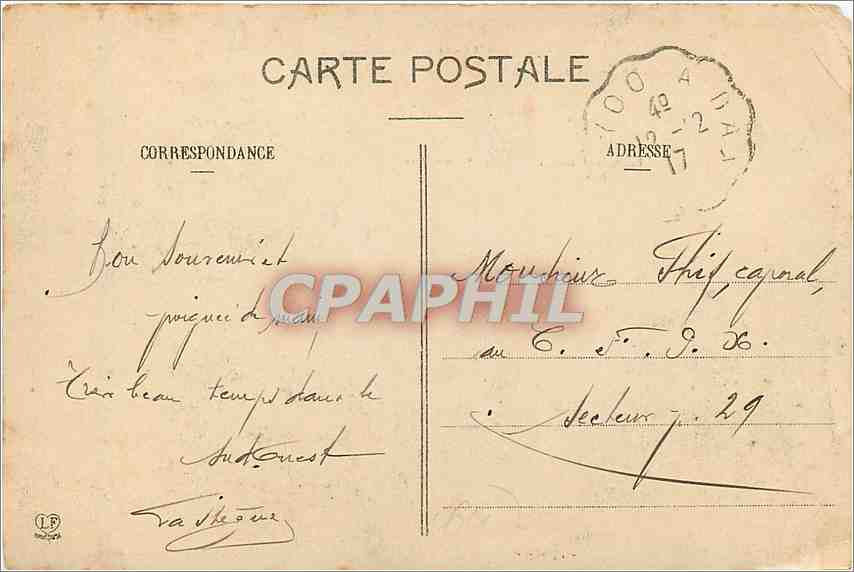 CARTE POSTALE
CORRESPONDANCE
ADRESSE
4º
12 - 2
17
Bon Souvenir et
poignée de main
Très beau temps dans le
Sud-Ouest
LF
Monsieur Thif, caporal,
au C. F.
Secteur p. 29
CPAPHIL